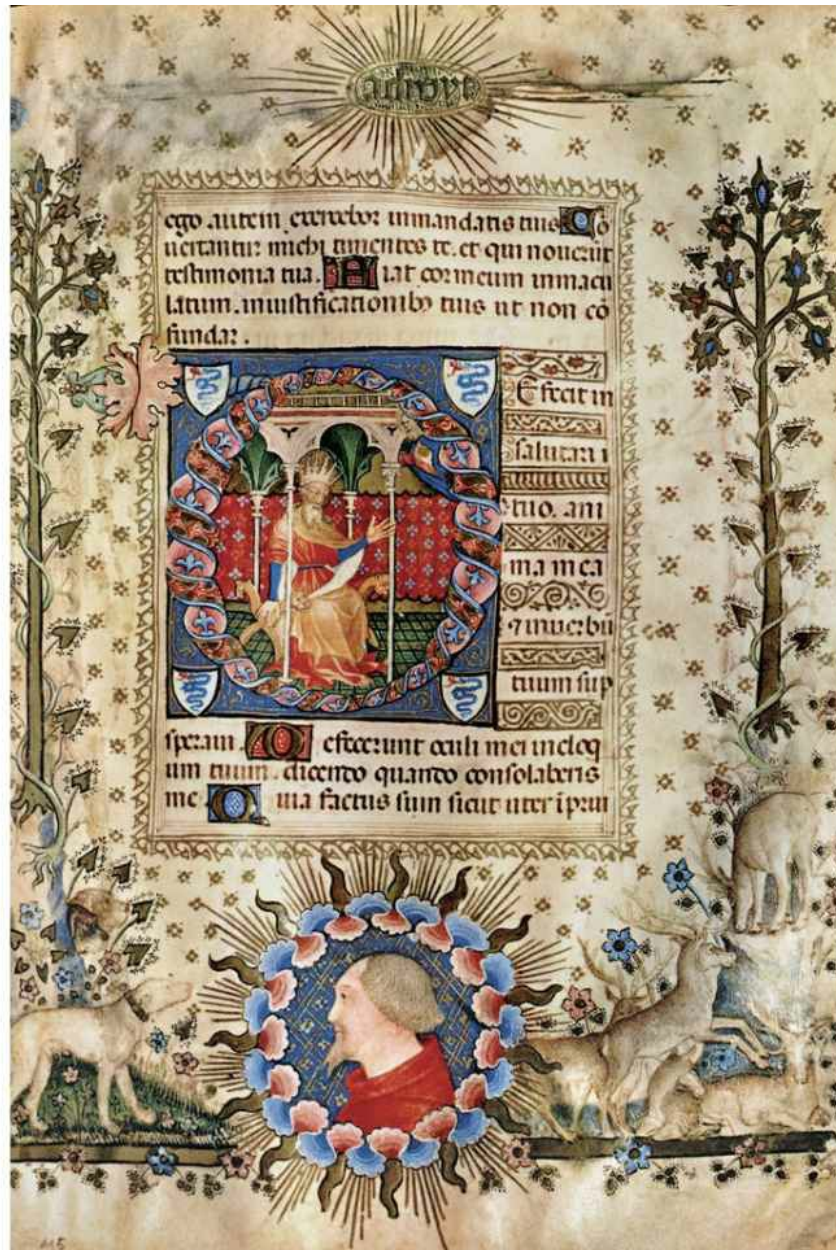 ego .autem .exercebor in mandatis tuis Cō
vertantur michi timentes te. et qui noverūt
testimonia tua. Fiat cor meum inmacu
latum. in iustificationibꝫ tuis ut non cō
fundar.
Efecit in
salutari
tuo. ani
ma mea
⁊ in verbū
tuum sup
speravi. Defecerunt oculi mei in eloq
um tuum. dicendo quando consolaberis
me Quia factus sum sicut uter ī prui
115